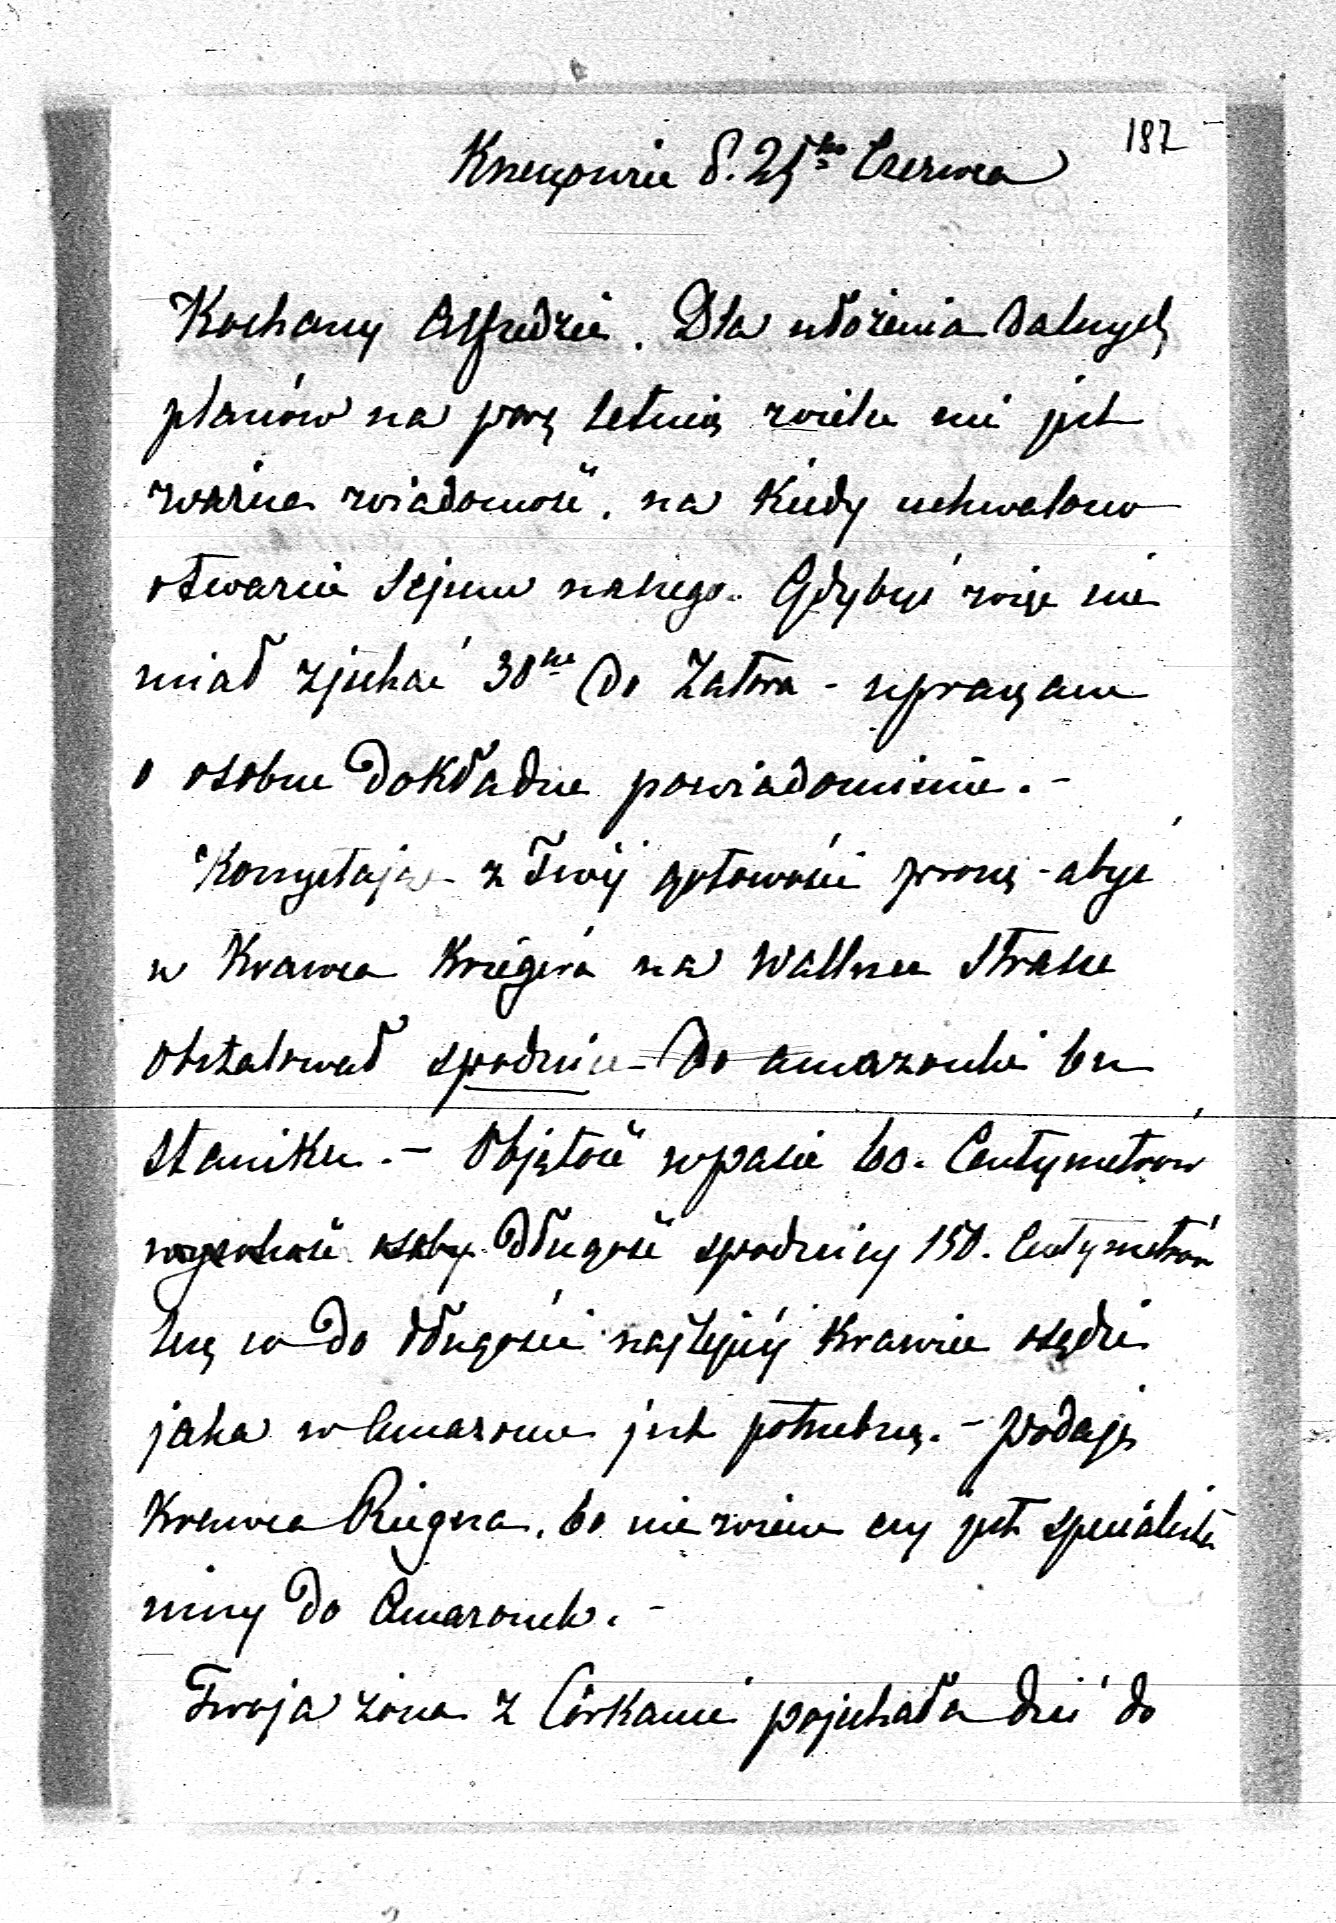 187
Krzeszowice d. 25go Czerwca
Kochany Alfredzie. Dla ułożenia dalszych
planów na porę letnią wielce mi jest
ważne wiadomość, na kiedy uchwalono
otwarcie Sejmu naszego. Gdybyś więc nie
miał zjechać 30go do Zatora - upraszam
o osobne dokładne powiadomienie. -
Korzystając z Twéj gotowości proszę - abyś
u Krawca Kriegera na Wallner Strasse
obstalował spodnice - do amazonki bez
staniku. - Objętość w pasie 60. Centymetrów
wysokość osoby długość spodnicy 150. Centymetrów
lecz co do długości najlepiéj Krawiec osądzi
jaka w Amazone jest potrzebną. - podaję
Krawca Riegera, bo nie wiem czy jest specialista
inny do Amazonek. -
Twoja żona z Córkami pojechała dziś do